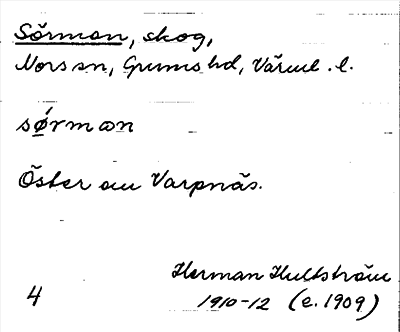 Sörman, skog,
Nors sn, Grums hd, Värml. l.
sǿrman
Öster om Varpnäs.
Herman Hultström
4 1910-12 (e. 1909)